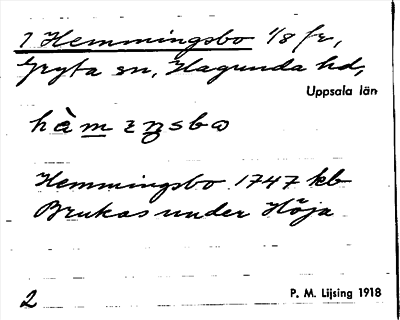 1 Hemmingsbo 1/8 fr,
Gryta sn, Hagunda hd,
Uppsala län
Hemmingsbo 1747 kb
Brukas under Höja
2
P. M. Lijsing 1918